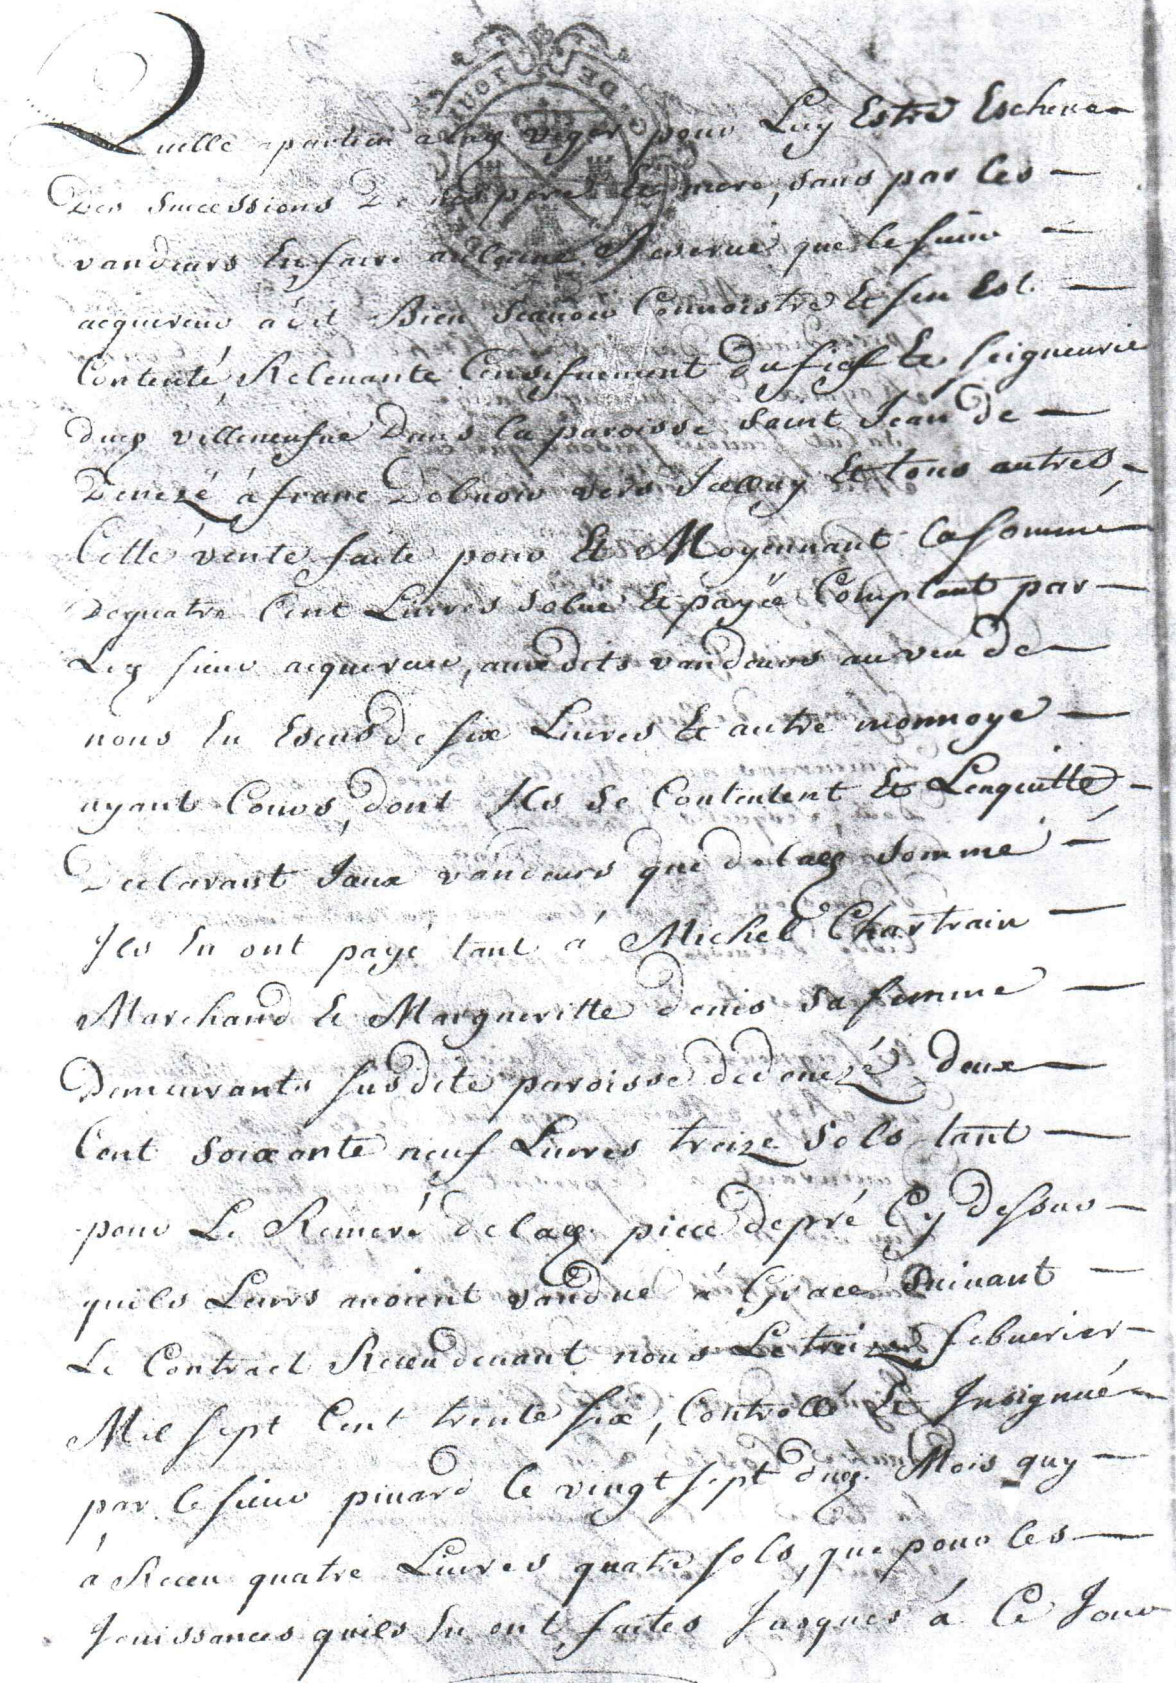 Quelle apartien aud. Viger pour Luy Estre Escheue
Des Successions De ses pere Et mere, sans par les
vandeurs En faire aulcune Reserue que le sieur
acquereur à dit Bien Scauoir Connoistre Et sen Est
Contenté, Relevante Censifuement Du fief Et seigneurie
dud. villeneufue Dans la paroisse saint Jean De
Denezé à franc Debuoir vers Jceluy Et tous autres
Cette vente faite pour Et Moyennant la somme
De quatre Cent Liures Solue Et payée Comptant par
Led. sieur acquereur, auxdits vandeurs au veu De
nous En Escus De six Liures Et autre monnoye
ayant Cours, dont Ils se Contentent Et Lenquitte,
Declarant Jceux vandeurs que de lad. somme
Ils En ont payé tant à Michel Chartrain
Marchand Et Margueritte denis sa femme
Demeurants susdite paroisse de denezé deux
Cent soixante neuf Liures treize sols tant
pour Le Remeré De lad. piece de pré Cy Dessus
quils Leurs auoient vandue à Grace suiuant
Le Contract Receu deuant nous Le treize febuerier
Mil sept Cent trente six, Controllé Et Insignué
par le sieur pinard le vingt sept dud. Mois quy
à Receu quatre Liures quatre sols, que pour les
Jouissances quils En ont faites Jusques à Ce Jour